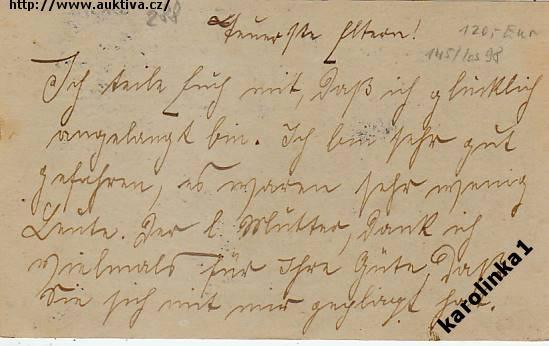 http://www.auktiva.cz/
268
Teuerste Eltern!
120,- Eur
145/los 98
Ich teile Euch mit, daß ich glücklich
angelangt bin. Ich bin sehr gut
gefahren, es waren sehr wenig
Leute. Der l. Mutter, dank ich
vielmals für Ihre Güte, daß
Sie sich mit mir geplagt hat.
karolinka1